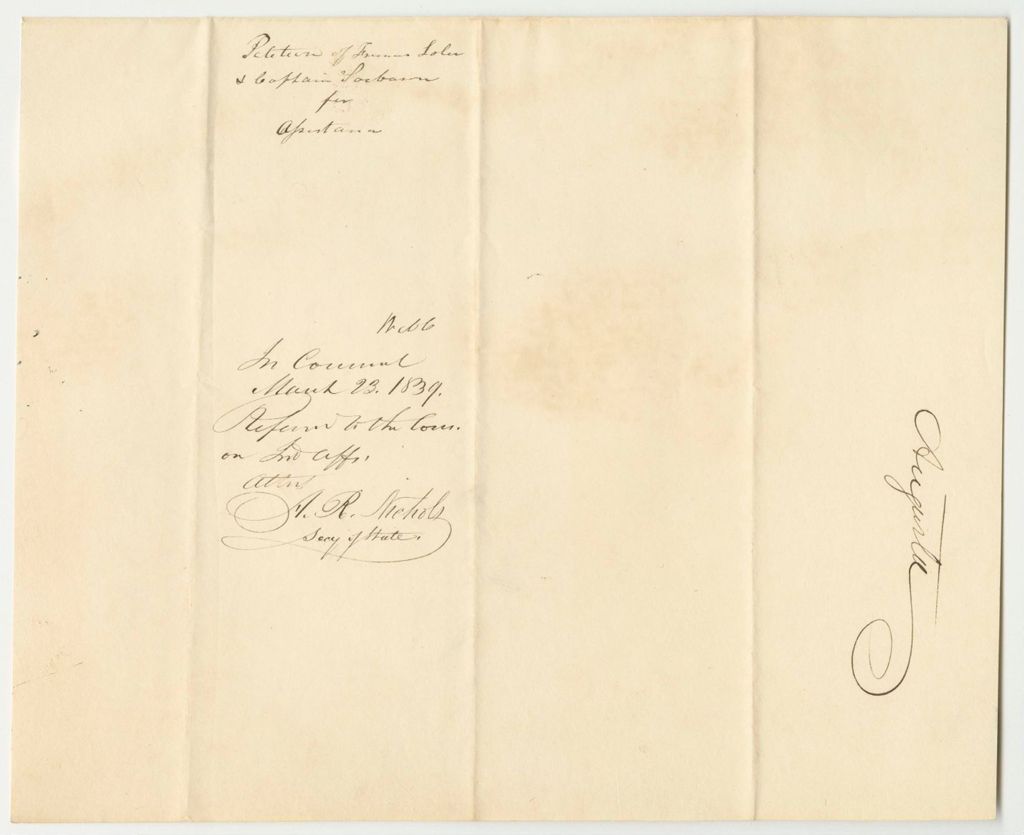 Petition of Francis Loler
& Captain Socbason
for
Assistance
In Council
March 23. 1839.
Referred to the Com.
on Ind Affs.
Attest
A. R. Nichols
Secy of State.
Augusta